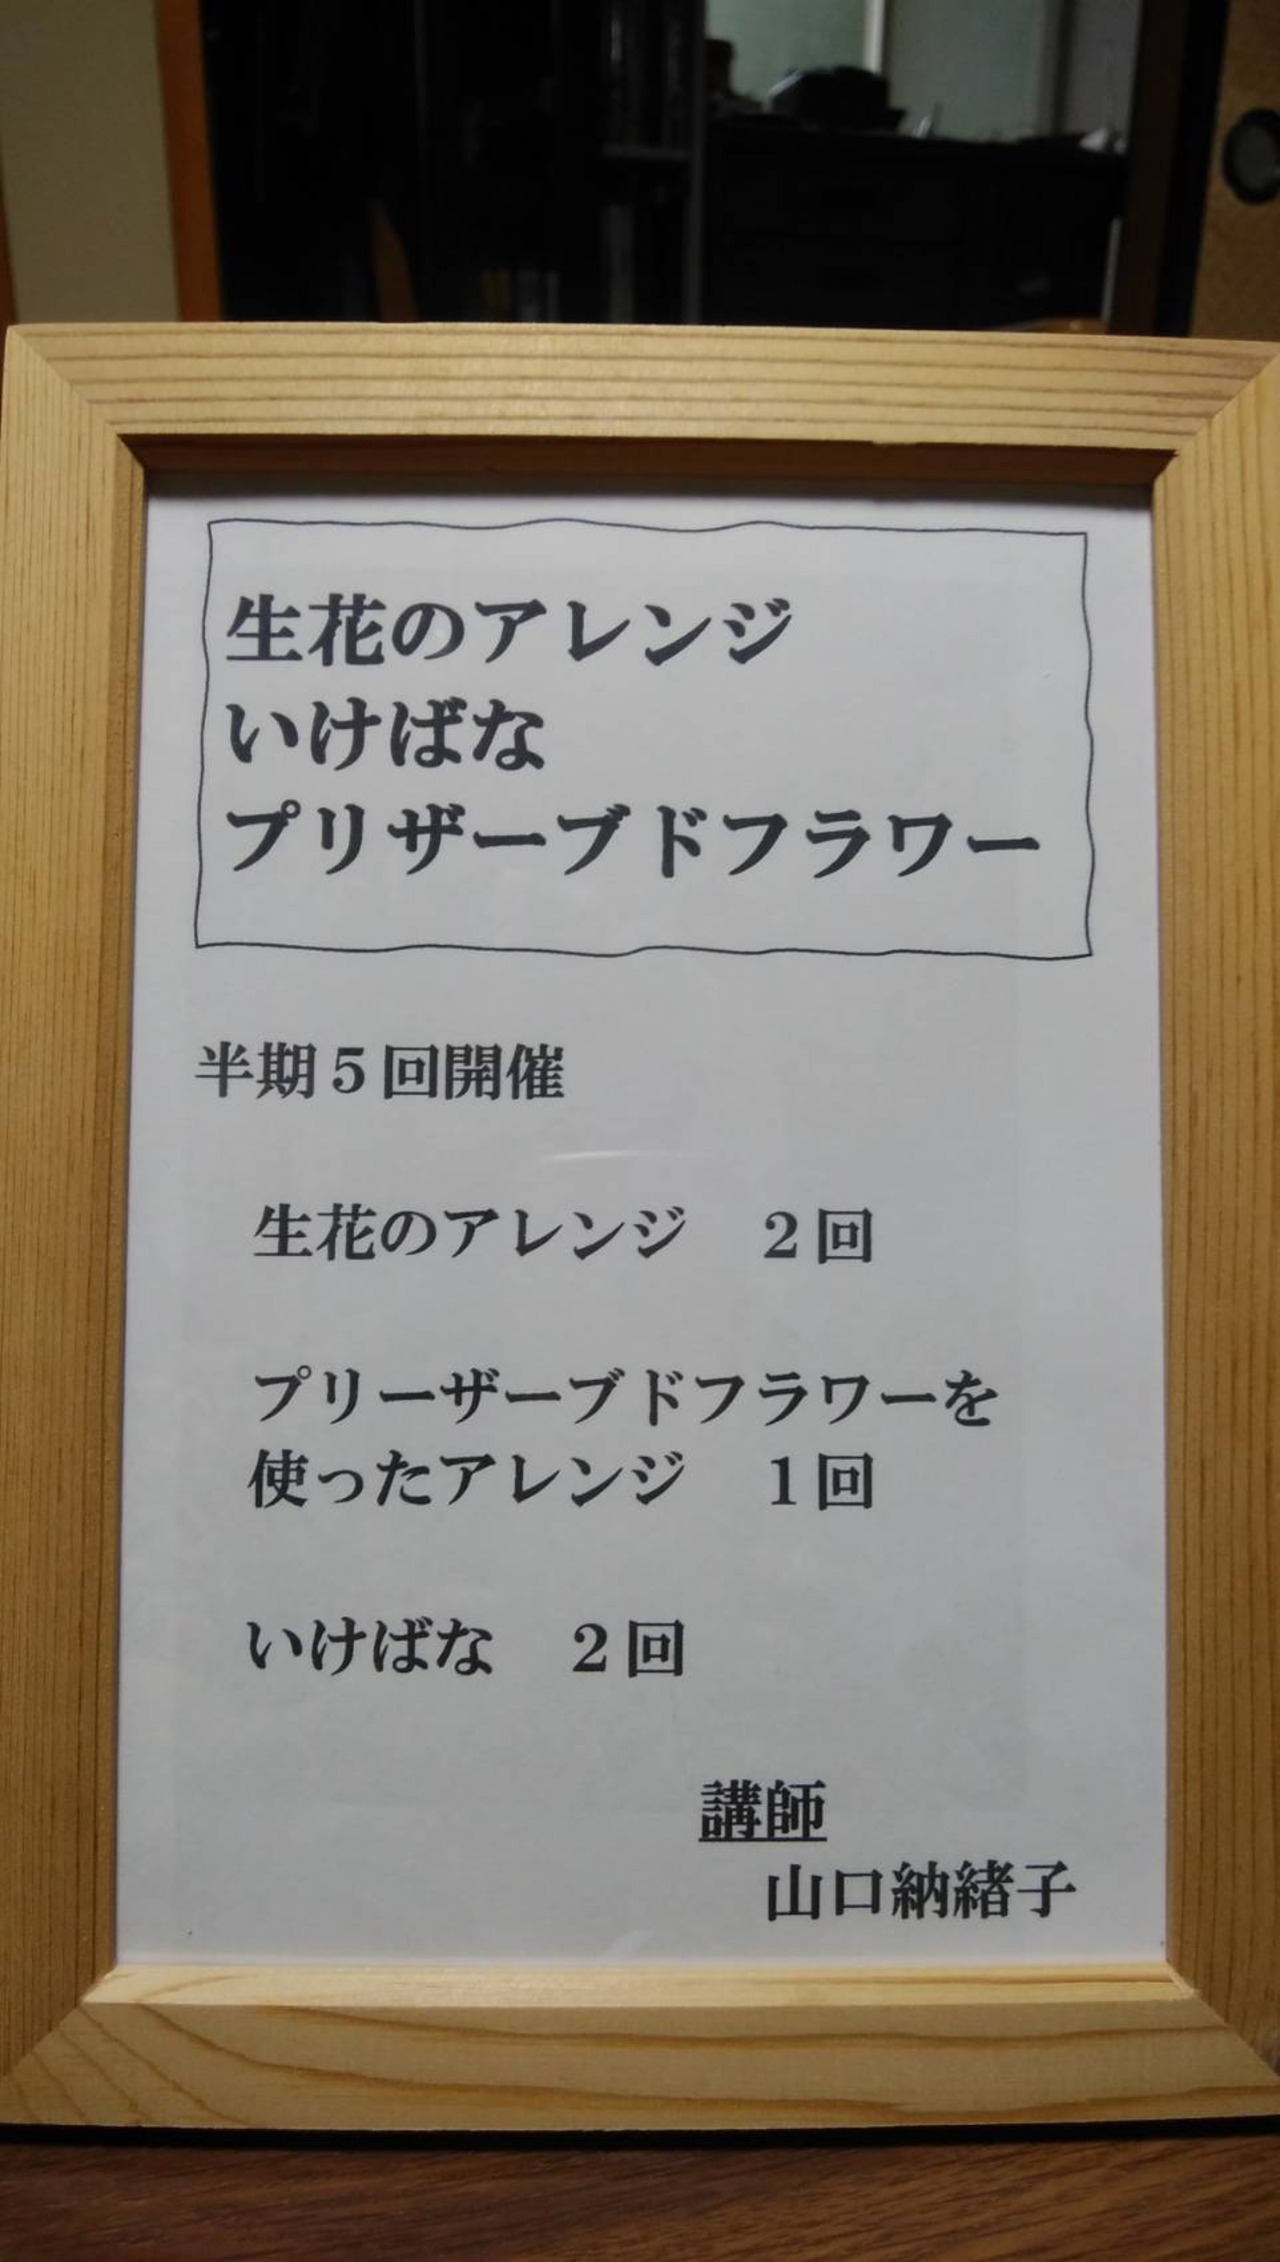 生花のアレンジ
いけばな
プリザーブドフラワー
半期５回開催
生花のアレンジ　２回
プリーザーブドフラワーを
使ったアレンジ　１回
いけばな　２回
講師
山口納緒子